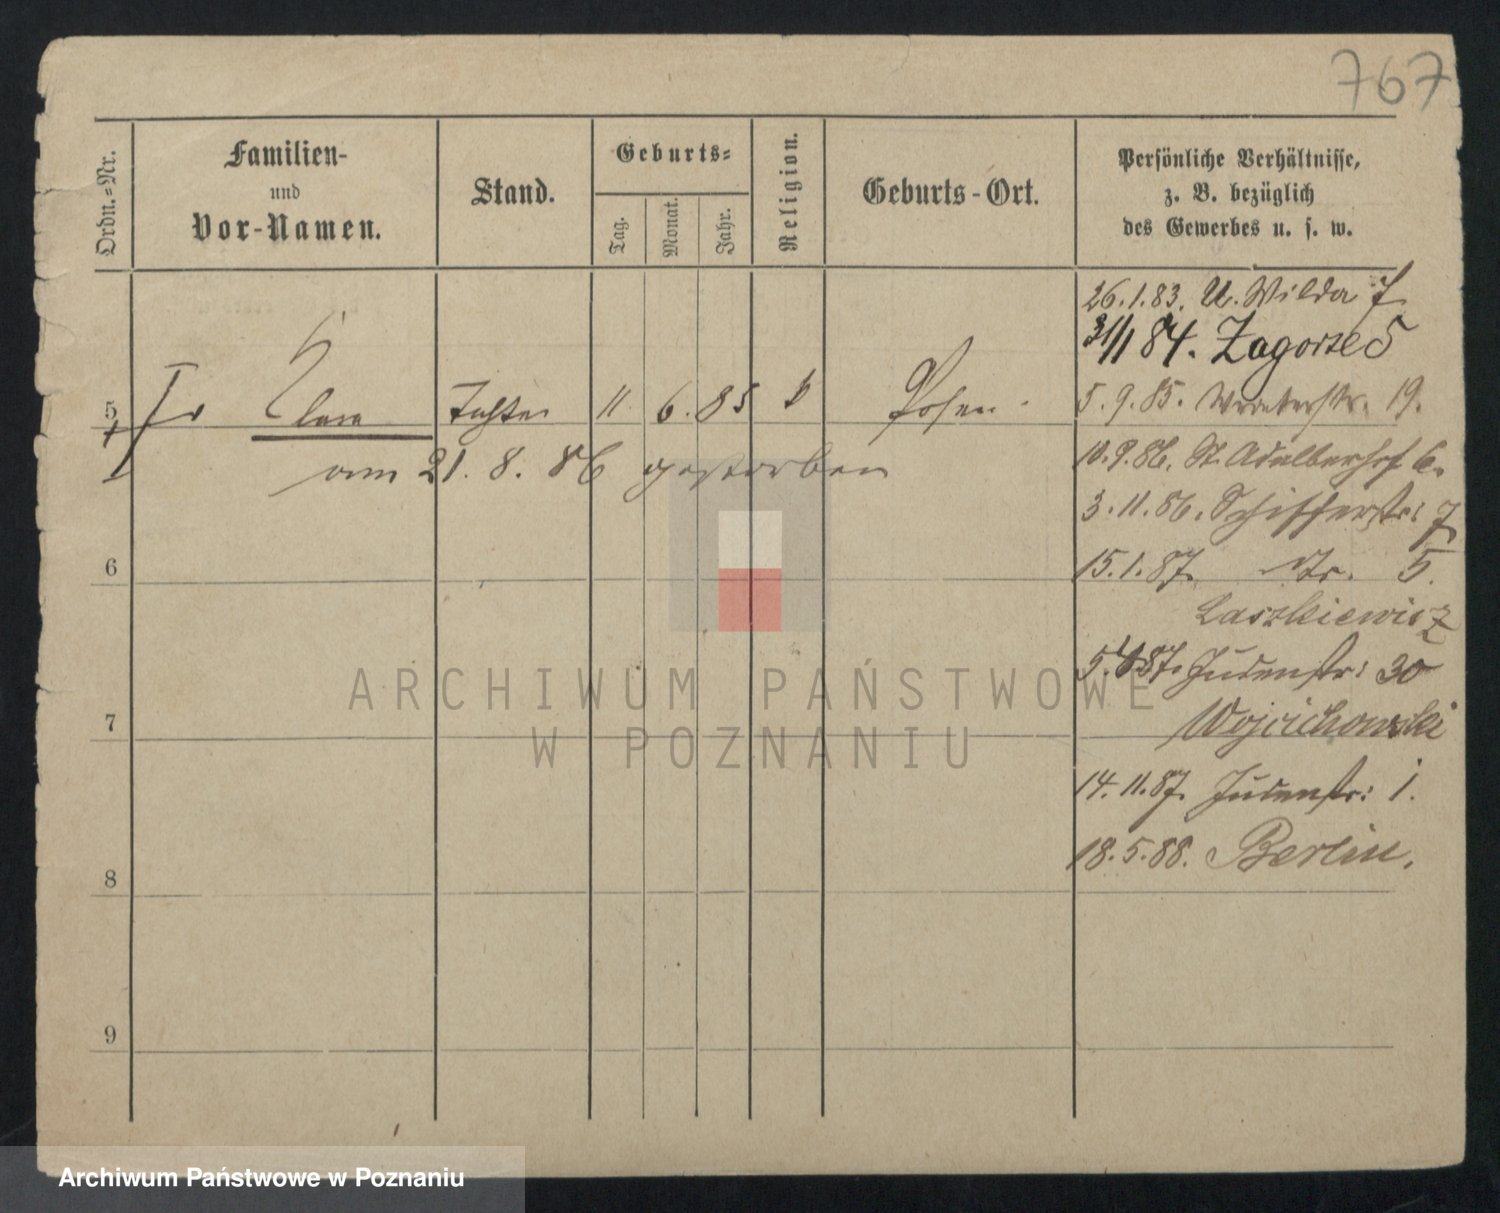 767
Ordn.-Nr.
Familien-
und
Vor-Namen.
Stand.
Geburts-
Tag.
Monat.
Jahr.
Religion.
Geburts-Ort.
Persönliche Verhältnisse,
z. B. bezüglich
des Gewerbes u. s. w.
26.1.83. U. Wilda 7
31/1 84. Zagorze 5
5 Clara Tochter 11. 6. 85 k Posen
5.9.85. 19.
am 21. 8. 86 gestorben
10.9.86. St. Adalberhof 6.
3.11.86. Schifferstr: 7
6
15.1.87. 5.
Laszkiewicz
5.4.87. Judenstr: 30
7
Wojciechowski
14.11.87. Judenstr: 1.
18.5.88. Berlin.
8
9
ARCHIWUM PAŃSTWOWE
W POZNANIU
Archiwum Państwowe w Poznaniu